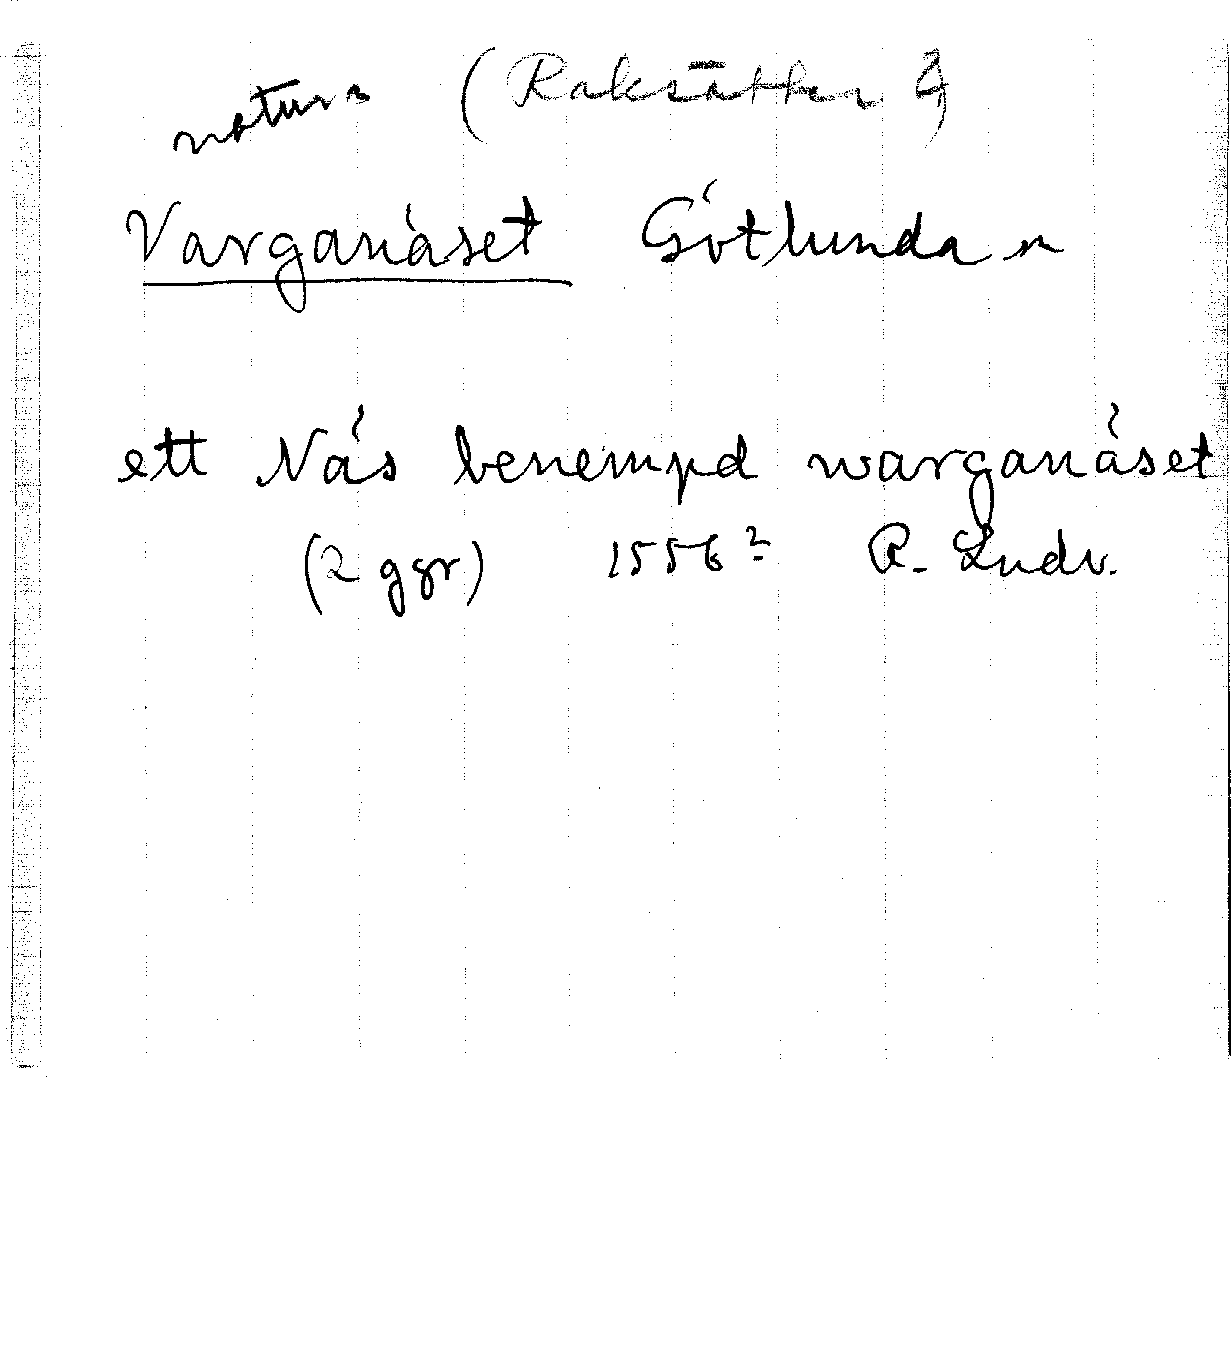 naturn (Raksätter ?)
Varganäset Götlunda sn
ett Näs benempd warganäset
(2 ggr) 1556 2 R. Ludv.